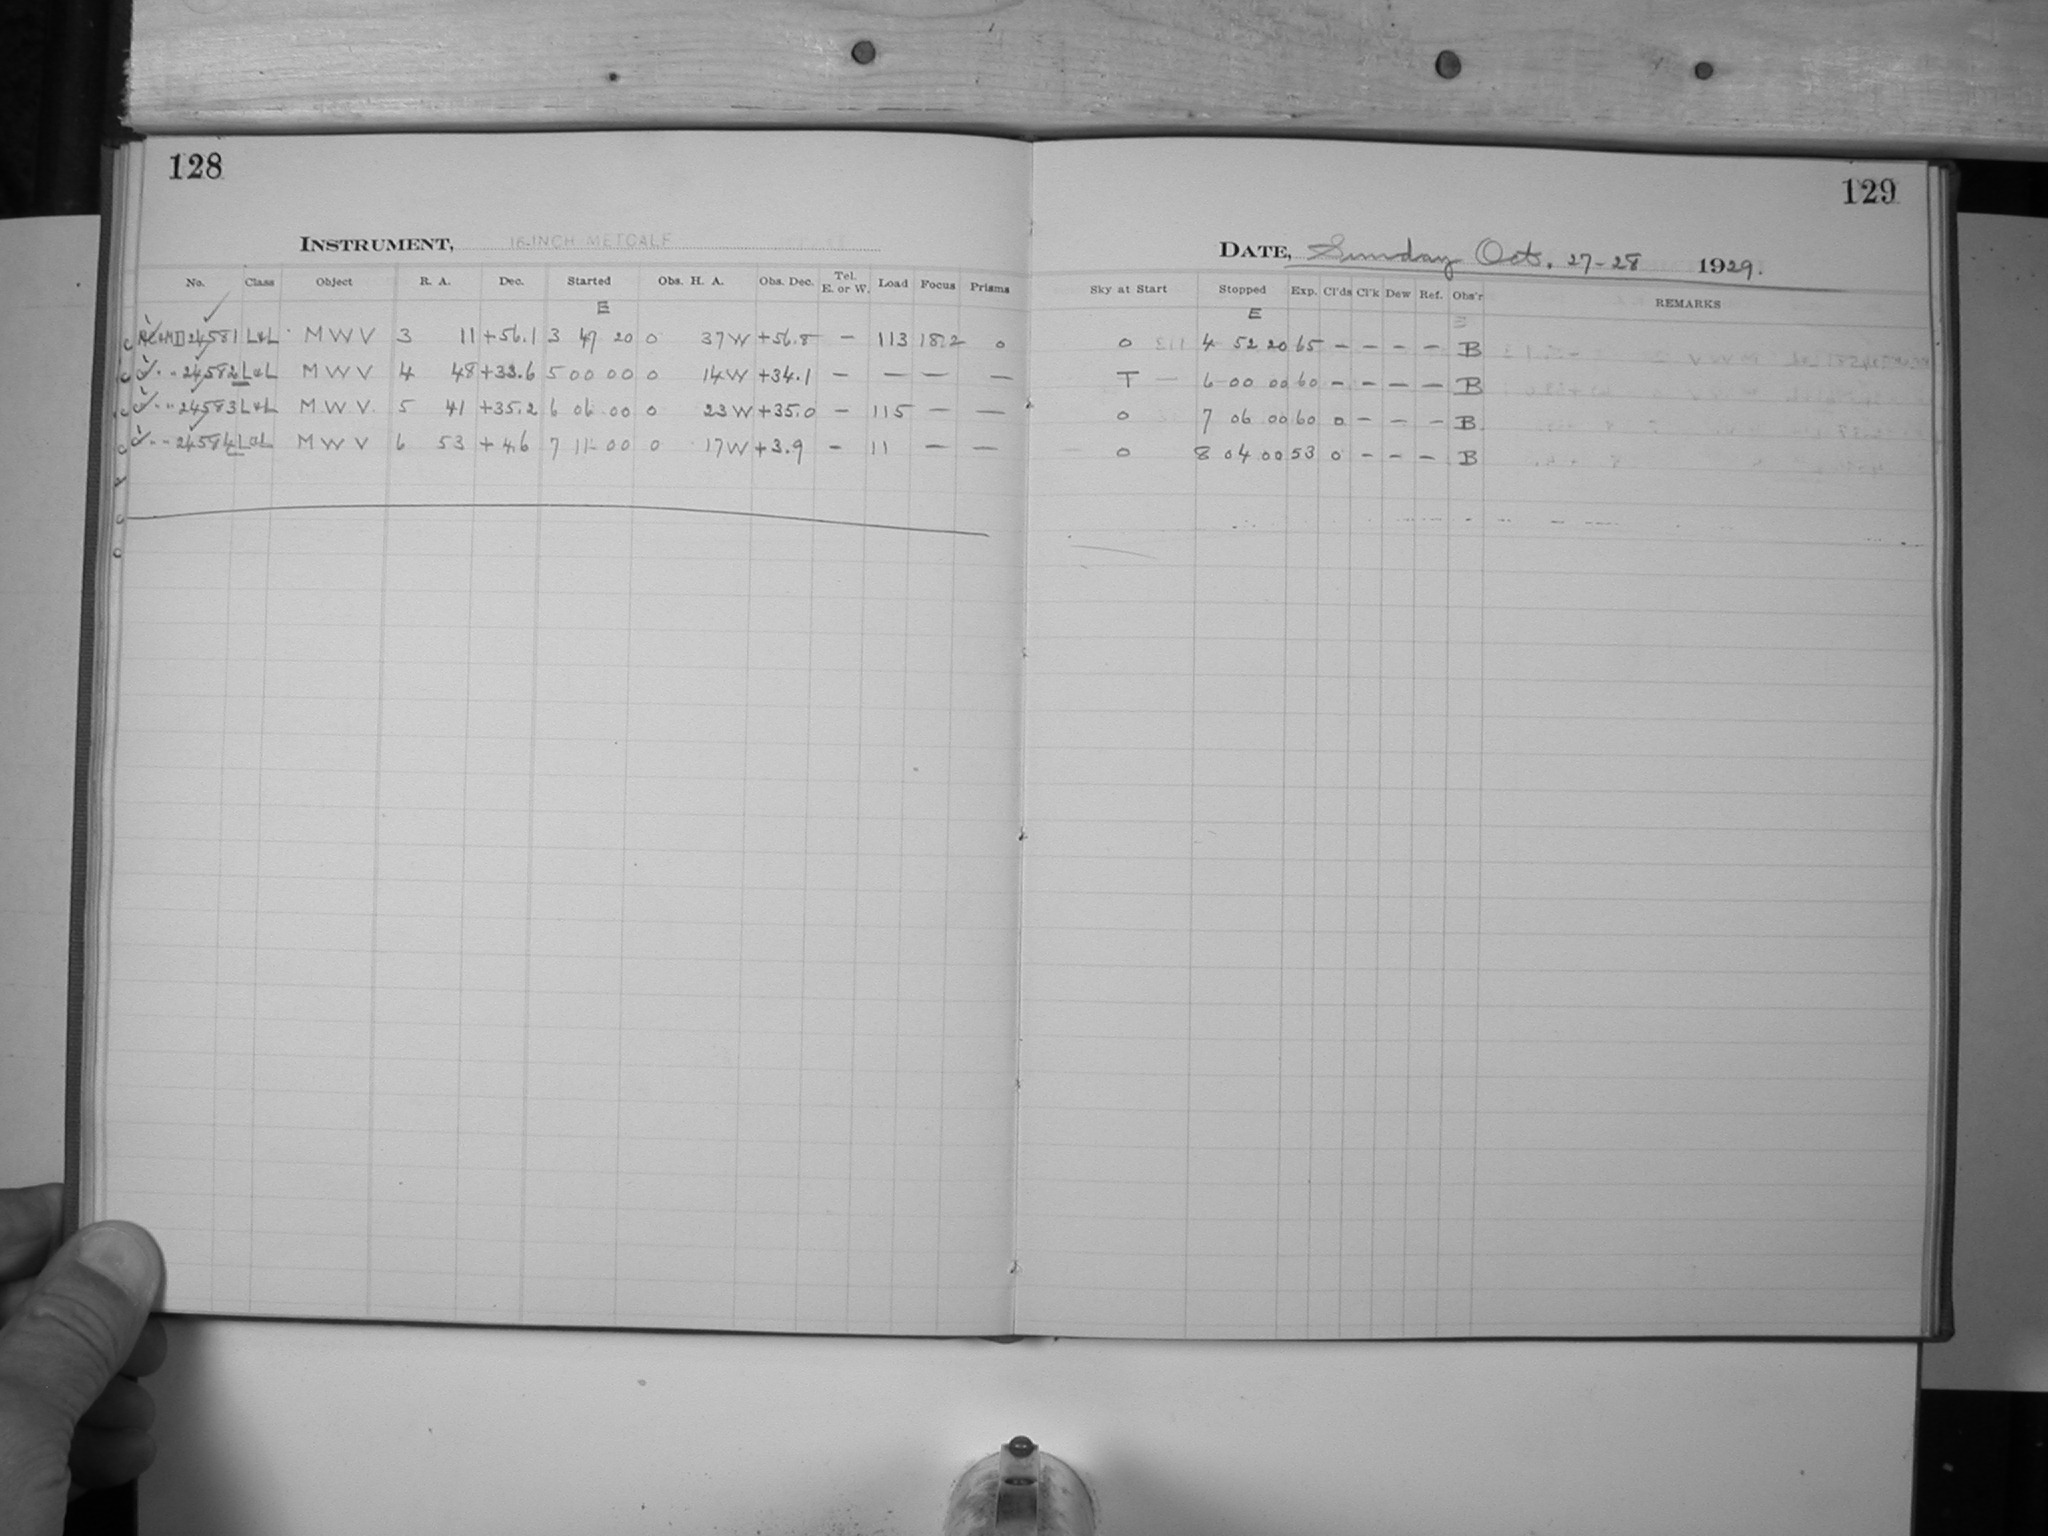 128
129
INSTRUMENT, 16-INCH METCALF
DATE, Sunday Oct. 27-28 1929.
No. Class Object R. A. Dec. Started Obs. H. A. Obs. Dec. Tel. E. or W. Load Focus Prisms Sky at Start Stopped Exp. Cl'ds Cl'k Dew Ref. Obs'r REMARKS
E E
24581 L&L M W V 3 11 +56.1 3 47 20 0 37 W +56.8 — 113 18.2 0 0 4 52 20 65 — — — — B
" " 24582 L&L M W V 4 48 +33.6 5 00 00 0 14 W +34.1 — — — — T 6 00 00 60 — — — — B
" " 24583 L&L M W V. 5 41 +35.2 6 06 00 0 23 W +35.0 — 115 — — 0 7 06 00 60 0 — — — B
" " 24584 L&L M W V 6 53 +4.6 7 11 00 0 17 W +3.9 — 11 — — 0 8 04 00 53 0 — — — B